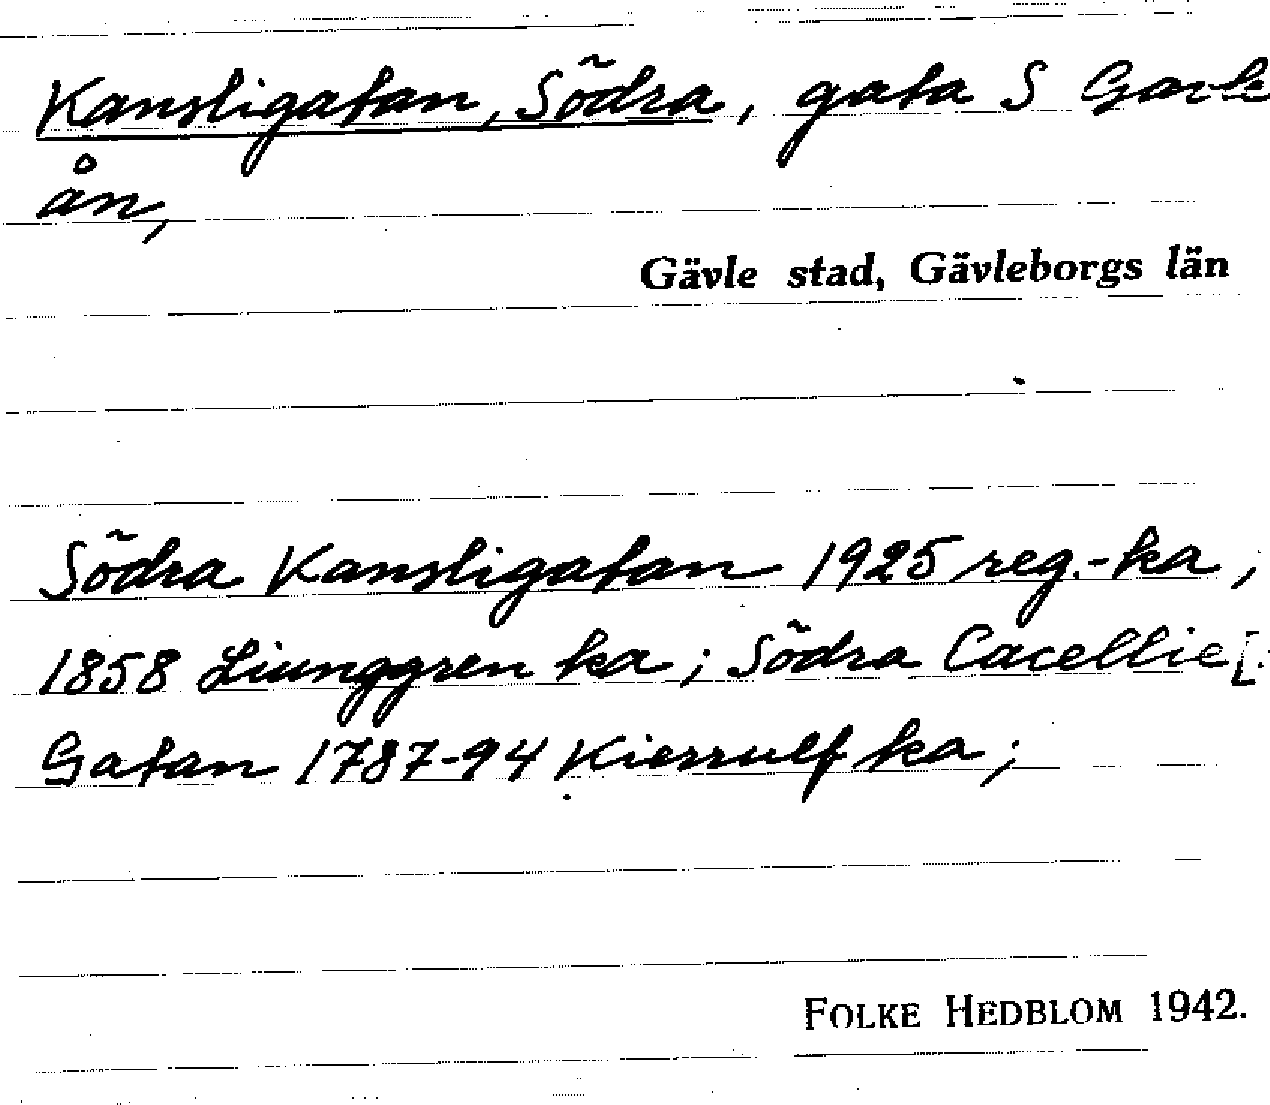 Kansligatan, Södra, gata S Gavle
ån,
Gävle stad, Gävleborgs län
Södra Kansligatan 1925 reg.-ka,
1858 Liunggren ka; Södra Cacellie [
Gatan 1787-94 Kierrulf ka;
FOLKE HEDBLOM 1942.